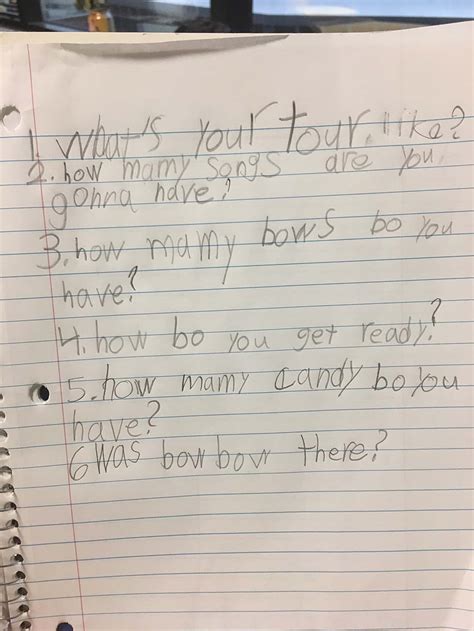 1. What's your tour. like?
2. how mamy songs are you
gonna have?
3. how mamy bows bo you
have?
4. how bo you get ready?
5. how mamy candy bo you
have?
6 was bow bow there?